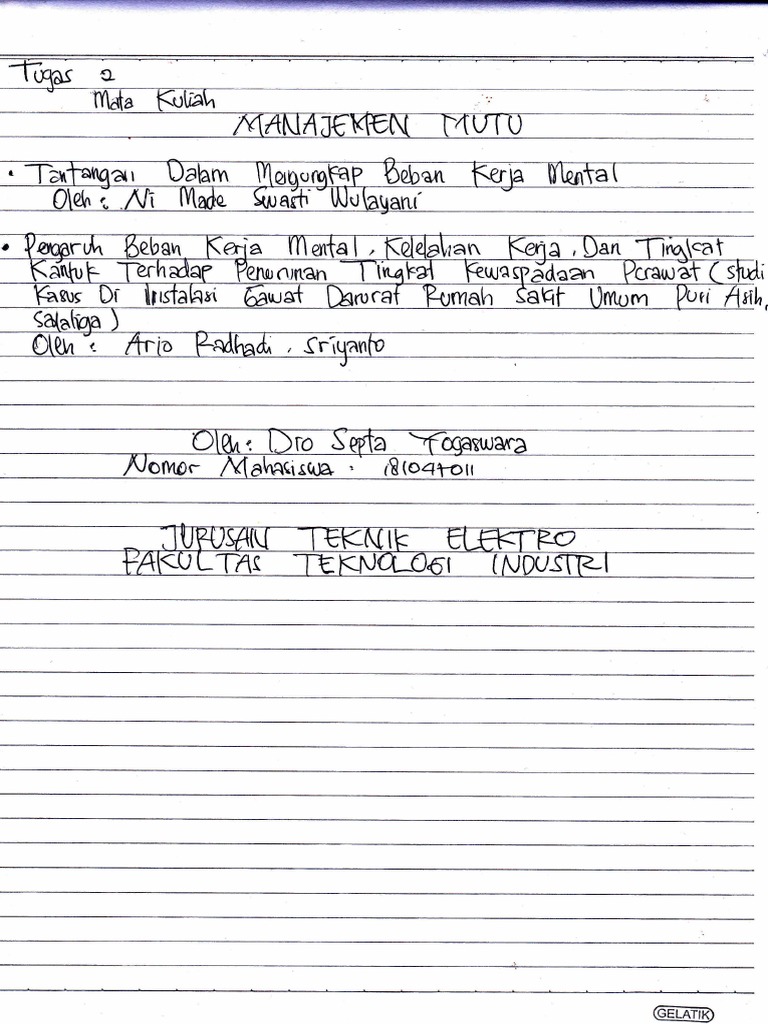 Tugas 2
Mata Kuliah
MANAJEMEN MUTU
• Tantangan Dalam Mengungkap Beban Kerja Mental
Oleh : Ni Made Swasti Wulayani
• Pengaruh Beban Kerja Mental, Kelelahan Kerja, Dan Tingkat
Kantuk Terhadap Penurunan Tingkat Kewaspadaan Perawat ( studi
Kasus Di Instalasi Gawat Darurat Rumah Sakit Umum Puri Asih,
Salatiga )
Oleh : Ario Radhadi, Sriyanto
Oleh : Dio Septa Yogaswara
Nomor Mahasiswa : 181047011
JURUSAN TEKNIK ELEKTRO
FAKULTAS TEKNOLOGI INDUSTRI
GELATIK